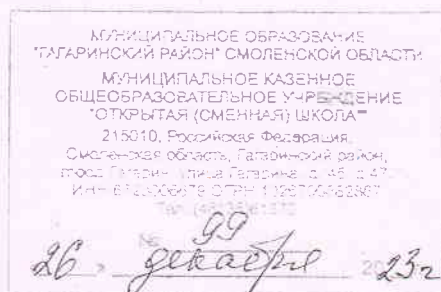 МУНИЦИПАЛЬНОЕ ОБРАЗОВАНИЕ
"ГАГАРИНСКИЙ РАЙОН" СМОЛЕНСКОЙ ОБЛАСТИ
МУНИЦИПАЛЬНОЕ КАЗЕННОЕ
ОБЩЕОБРАЗОВАТЕЛЬНОЕ УЧРЕЖДЕНИЕ
"ОТКРЫТАЯ (СМЕННАЯ) ШКОЛА"
215010, Российская Федерация,
Смоленская область, Гагаринский район,
улица Гагарина
ИНН ОГРН
№ 99
26 » декабря 2023г